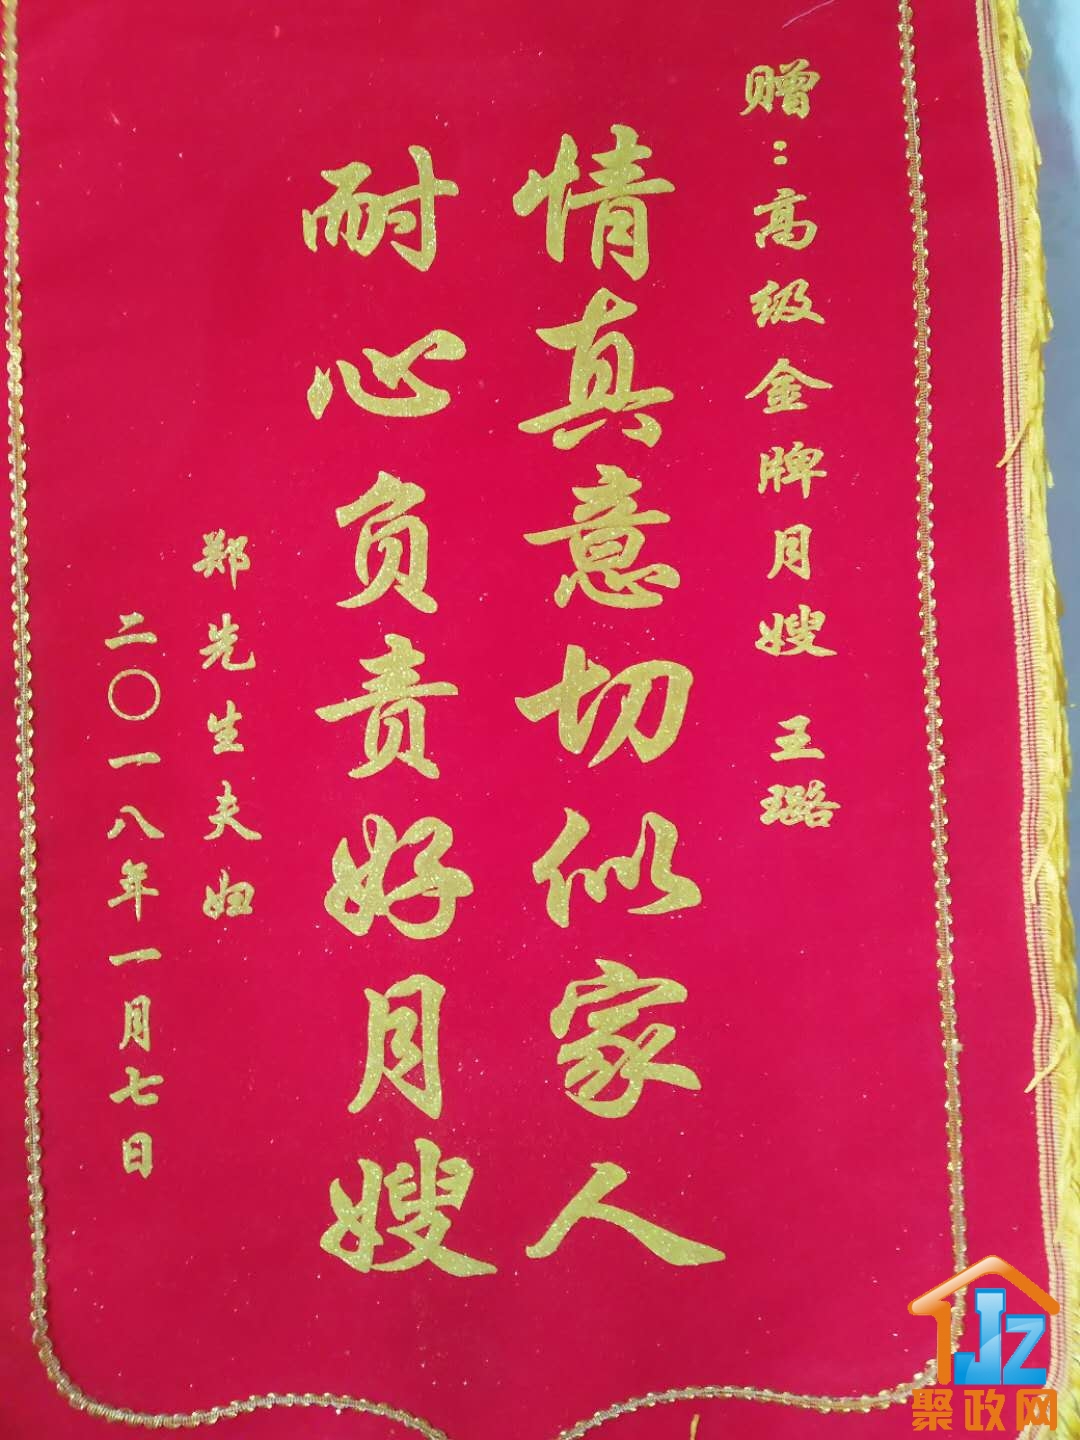 赠：高级金牌月嫂 王璐
情真意切似家人
耐心负责好月嫂
郑先生夫妇
二〇一八年一月七日
JZ
聚政网